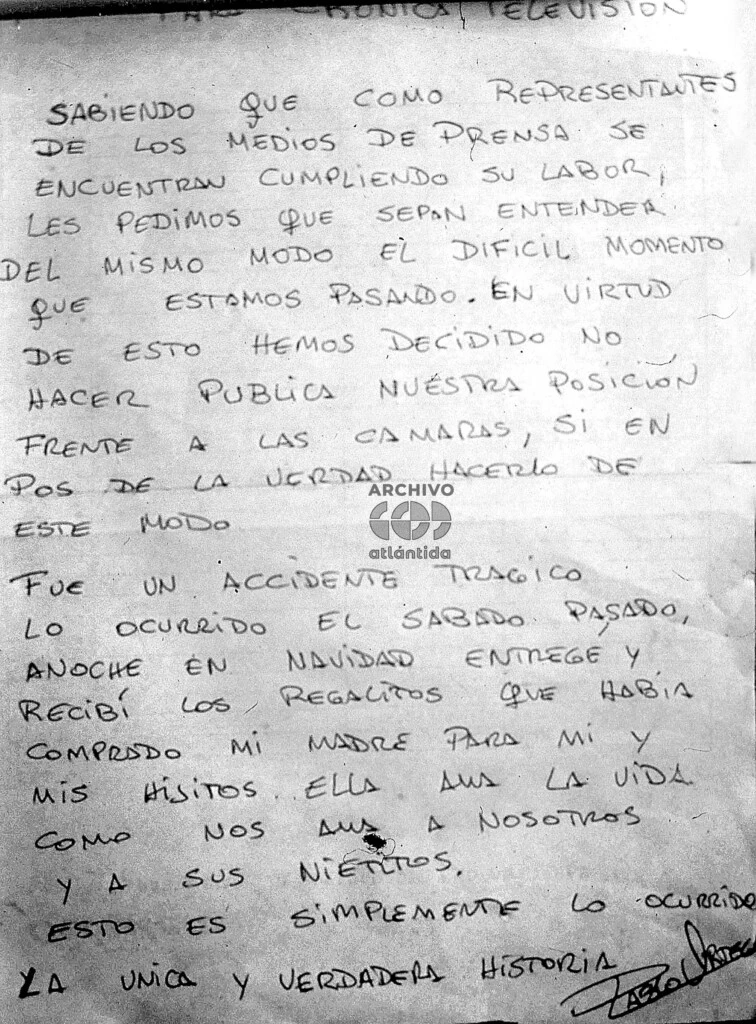 PARA CRONICA TELEVISION
SABIENDO QUE COMO REPRESENTANTES
DE LOS MEDIOS DE PRENSA SE
ENCUENTRAN CUMPLIENDO SU LABOR,
LES PEDIMOS QUE SEPAN ENTENDER
DEL MISMO MODO EL DIFICIL MOMENTO
QUE ESTAMOS PASANDO. EN VIRTUD
DE ESTO HEMOS DECIDIDO NO
HACER PUBLICA NUESTRA POSICIÓN
FRENTE A LAS CAMARAS, SI EN
POS DE LA VERDAD HACERLO DE
ARCHIVO
atlántida
ESTE MODO
FUE UN ACCIDENTE TRAGICO
LO OCURRIDO EL SABADO PASADO,
ANOCHE EN NAVIDAD ENTREGE Y
RECIBÍ LOS REGALITOS QUE HABIA
COMPRADO MI MADRE PARA MI Y
MIS HIJITOS. ELLA AMA LA VIDA
COMO NOS AMA A NOSOTROS
Y A SUS NIETITOS.
ESTO ES SIMPLEMENTE LO OCURRIDO
LA UNICA Y VERDADERA HISTORIA